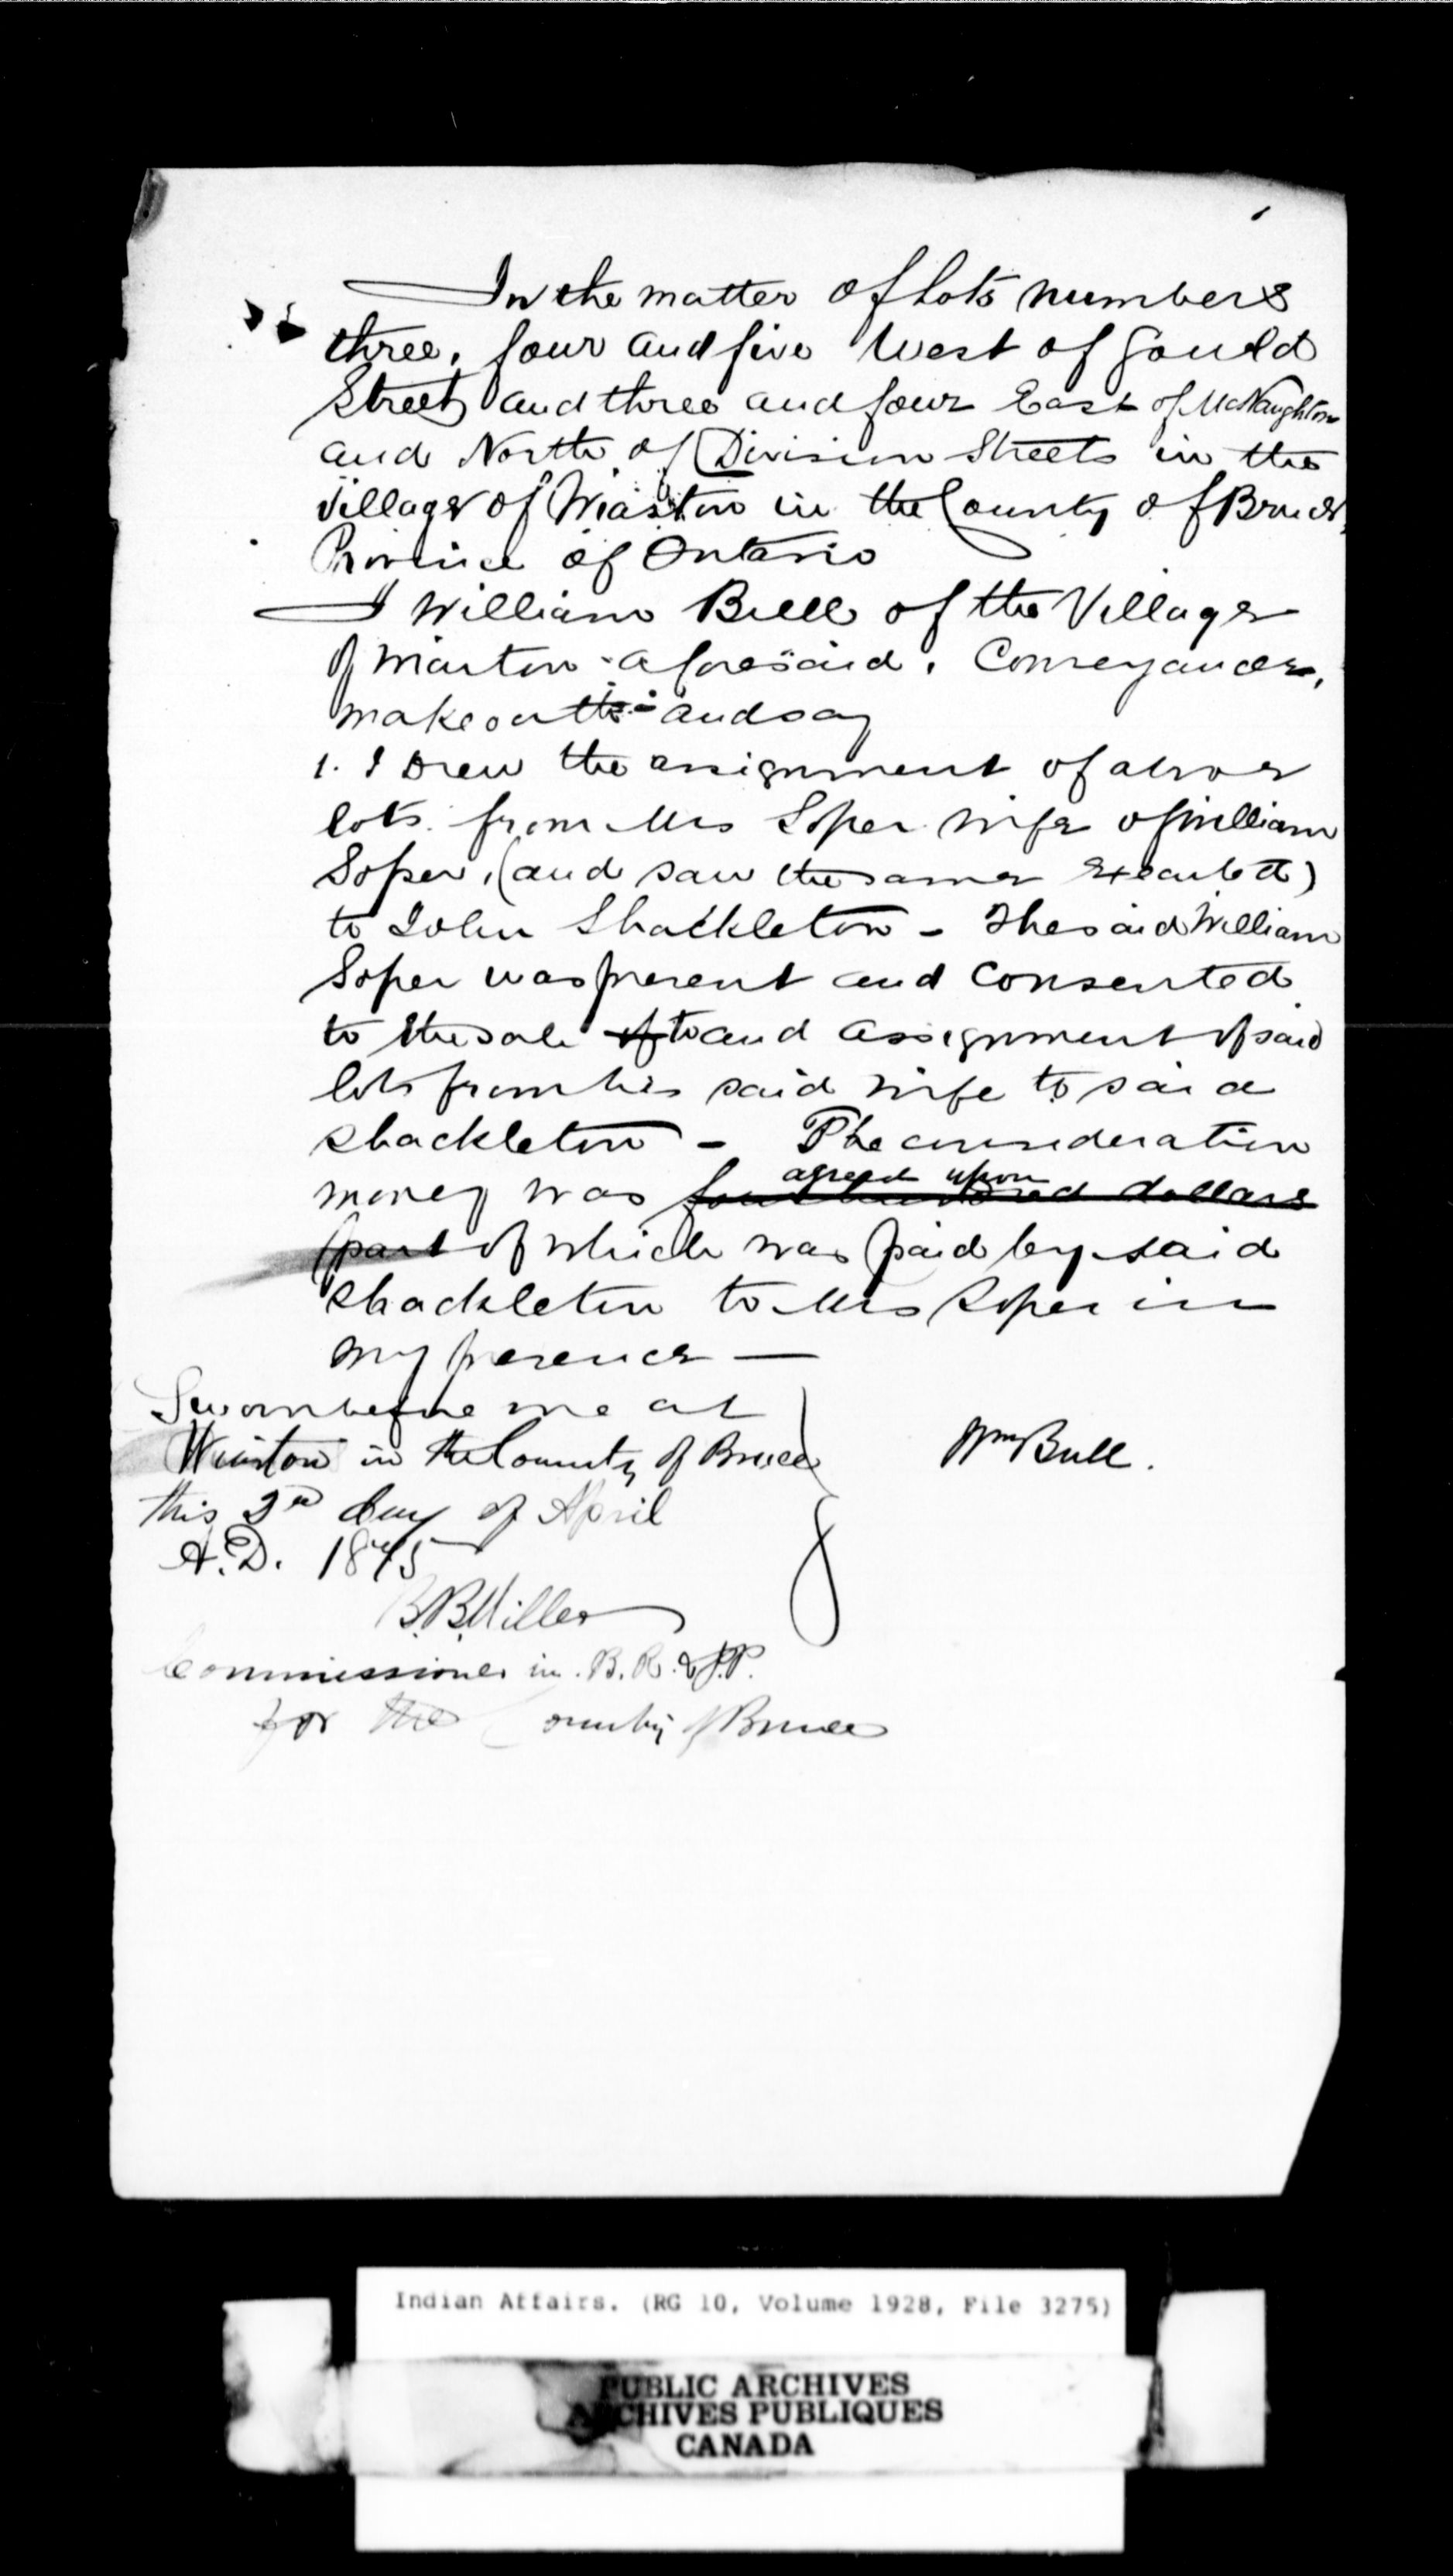 In the matter of Lots numbers
three, four and five West of Gould
Street and three and four East of McNaughton
and North of Division Streets in the
Village of Wiarton in the County of Bruce,
Province of Ontario
I William Bull of the Village
of Wiarton aforesaid, Conveyancer,
make oath and say
1. I Drew the assignment of above
lots from Mrs Soper wife of William
Soper, (and saw the same executed)
to John Shackleton - The said William
Soper was present and Consented
to the sale of to and assignment of said
lots from his said wife to said
Shackleton - The consideration
agreed upon
money was four hundred dollars
part of which was paid by said
Shackleton to Mrs Soper in
my presence —
Sworn before me at
Wiarton in the County of Bruce
Wm Bull.
this 2nd day of April
A.D. 1875
B.B. Miller
Commissioner in B.R. &
for the County of Bruce
Indian Affairs. (RG 10, Volume 1928, File 3275)
PUBLIC ARCHIVES
ARCHIVES PUBLIQUES
CANADA